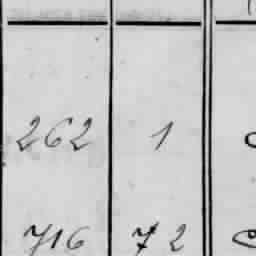 262 1
716 72